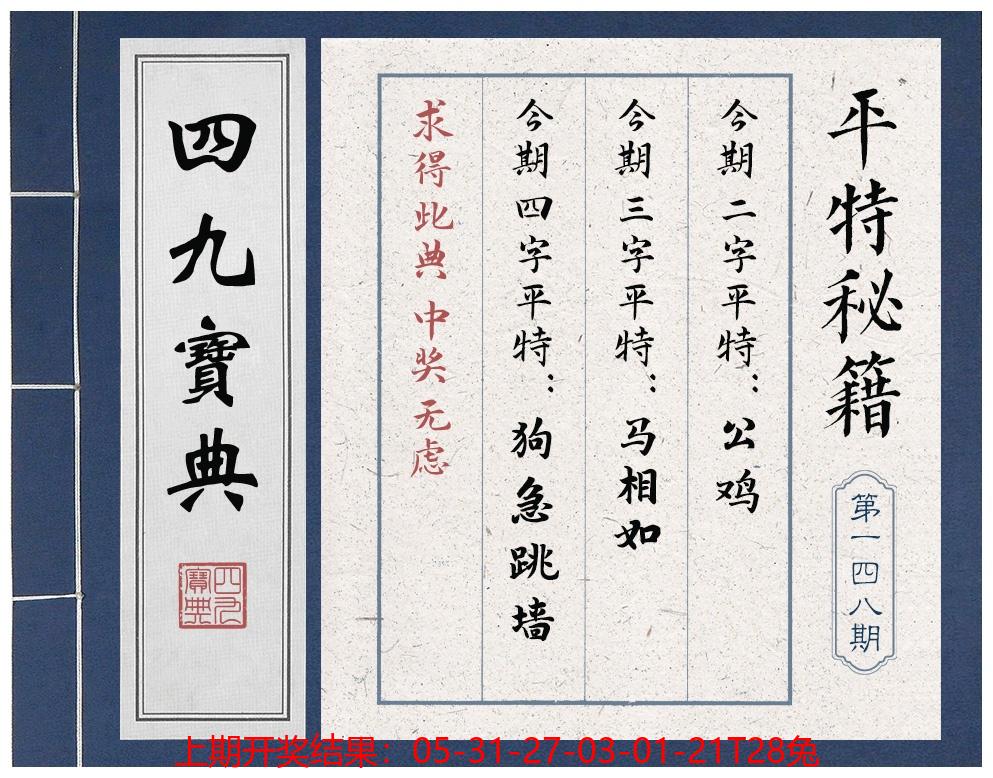 平特秘籍
第一四八期
今期二字平特：公鸡
今期三字平特：马相如
今期四字平特：狗急跳墙
求得此典 中奖无虑
四九寶典
四九寶典
上期开奖结果：05-31-27-03-01-21T28兔